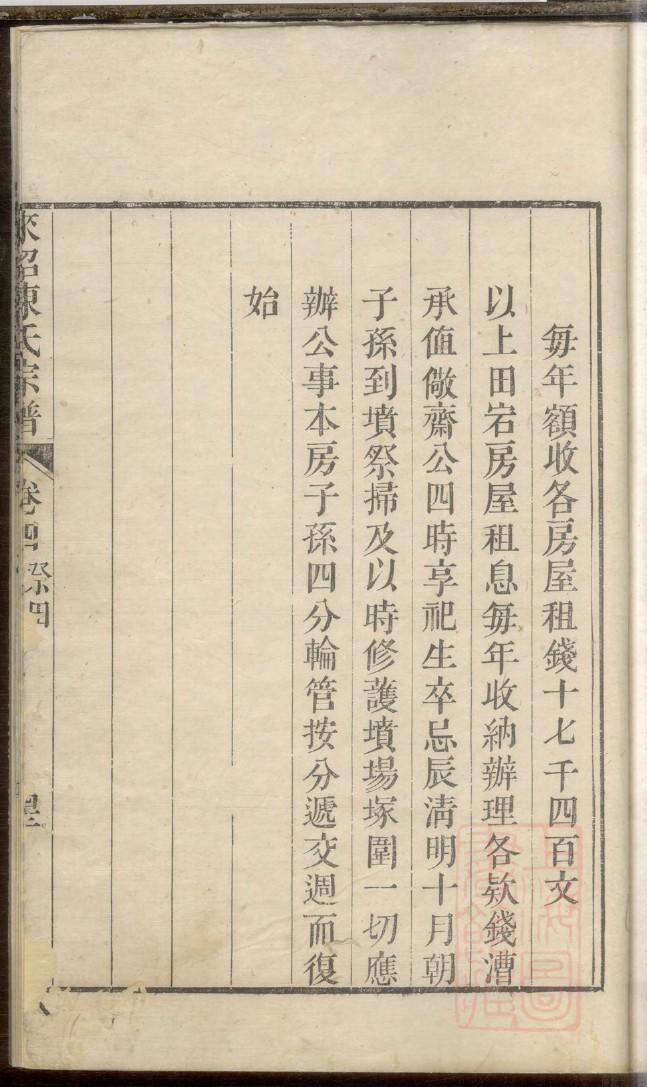 每年額收各房屋租錢十七千四百文
以上田宕房屋租息每年收納辦理各欵錢漕
承值儆齋公四時享祀生卒忌辰淸明十月朝
子孫到墳祭掃及以時修護墳塲塚圍一切應
辦公事本房子孫四分輪管按分遞交週而復
始
陳氏宗譜
卷四
祭四